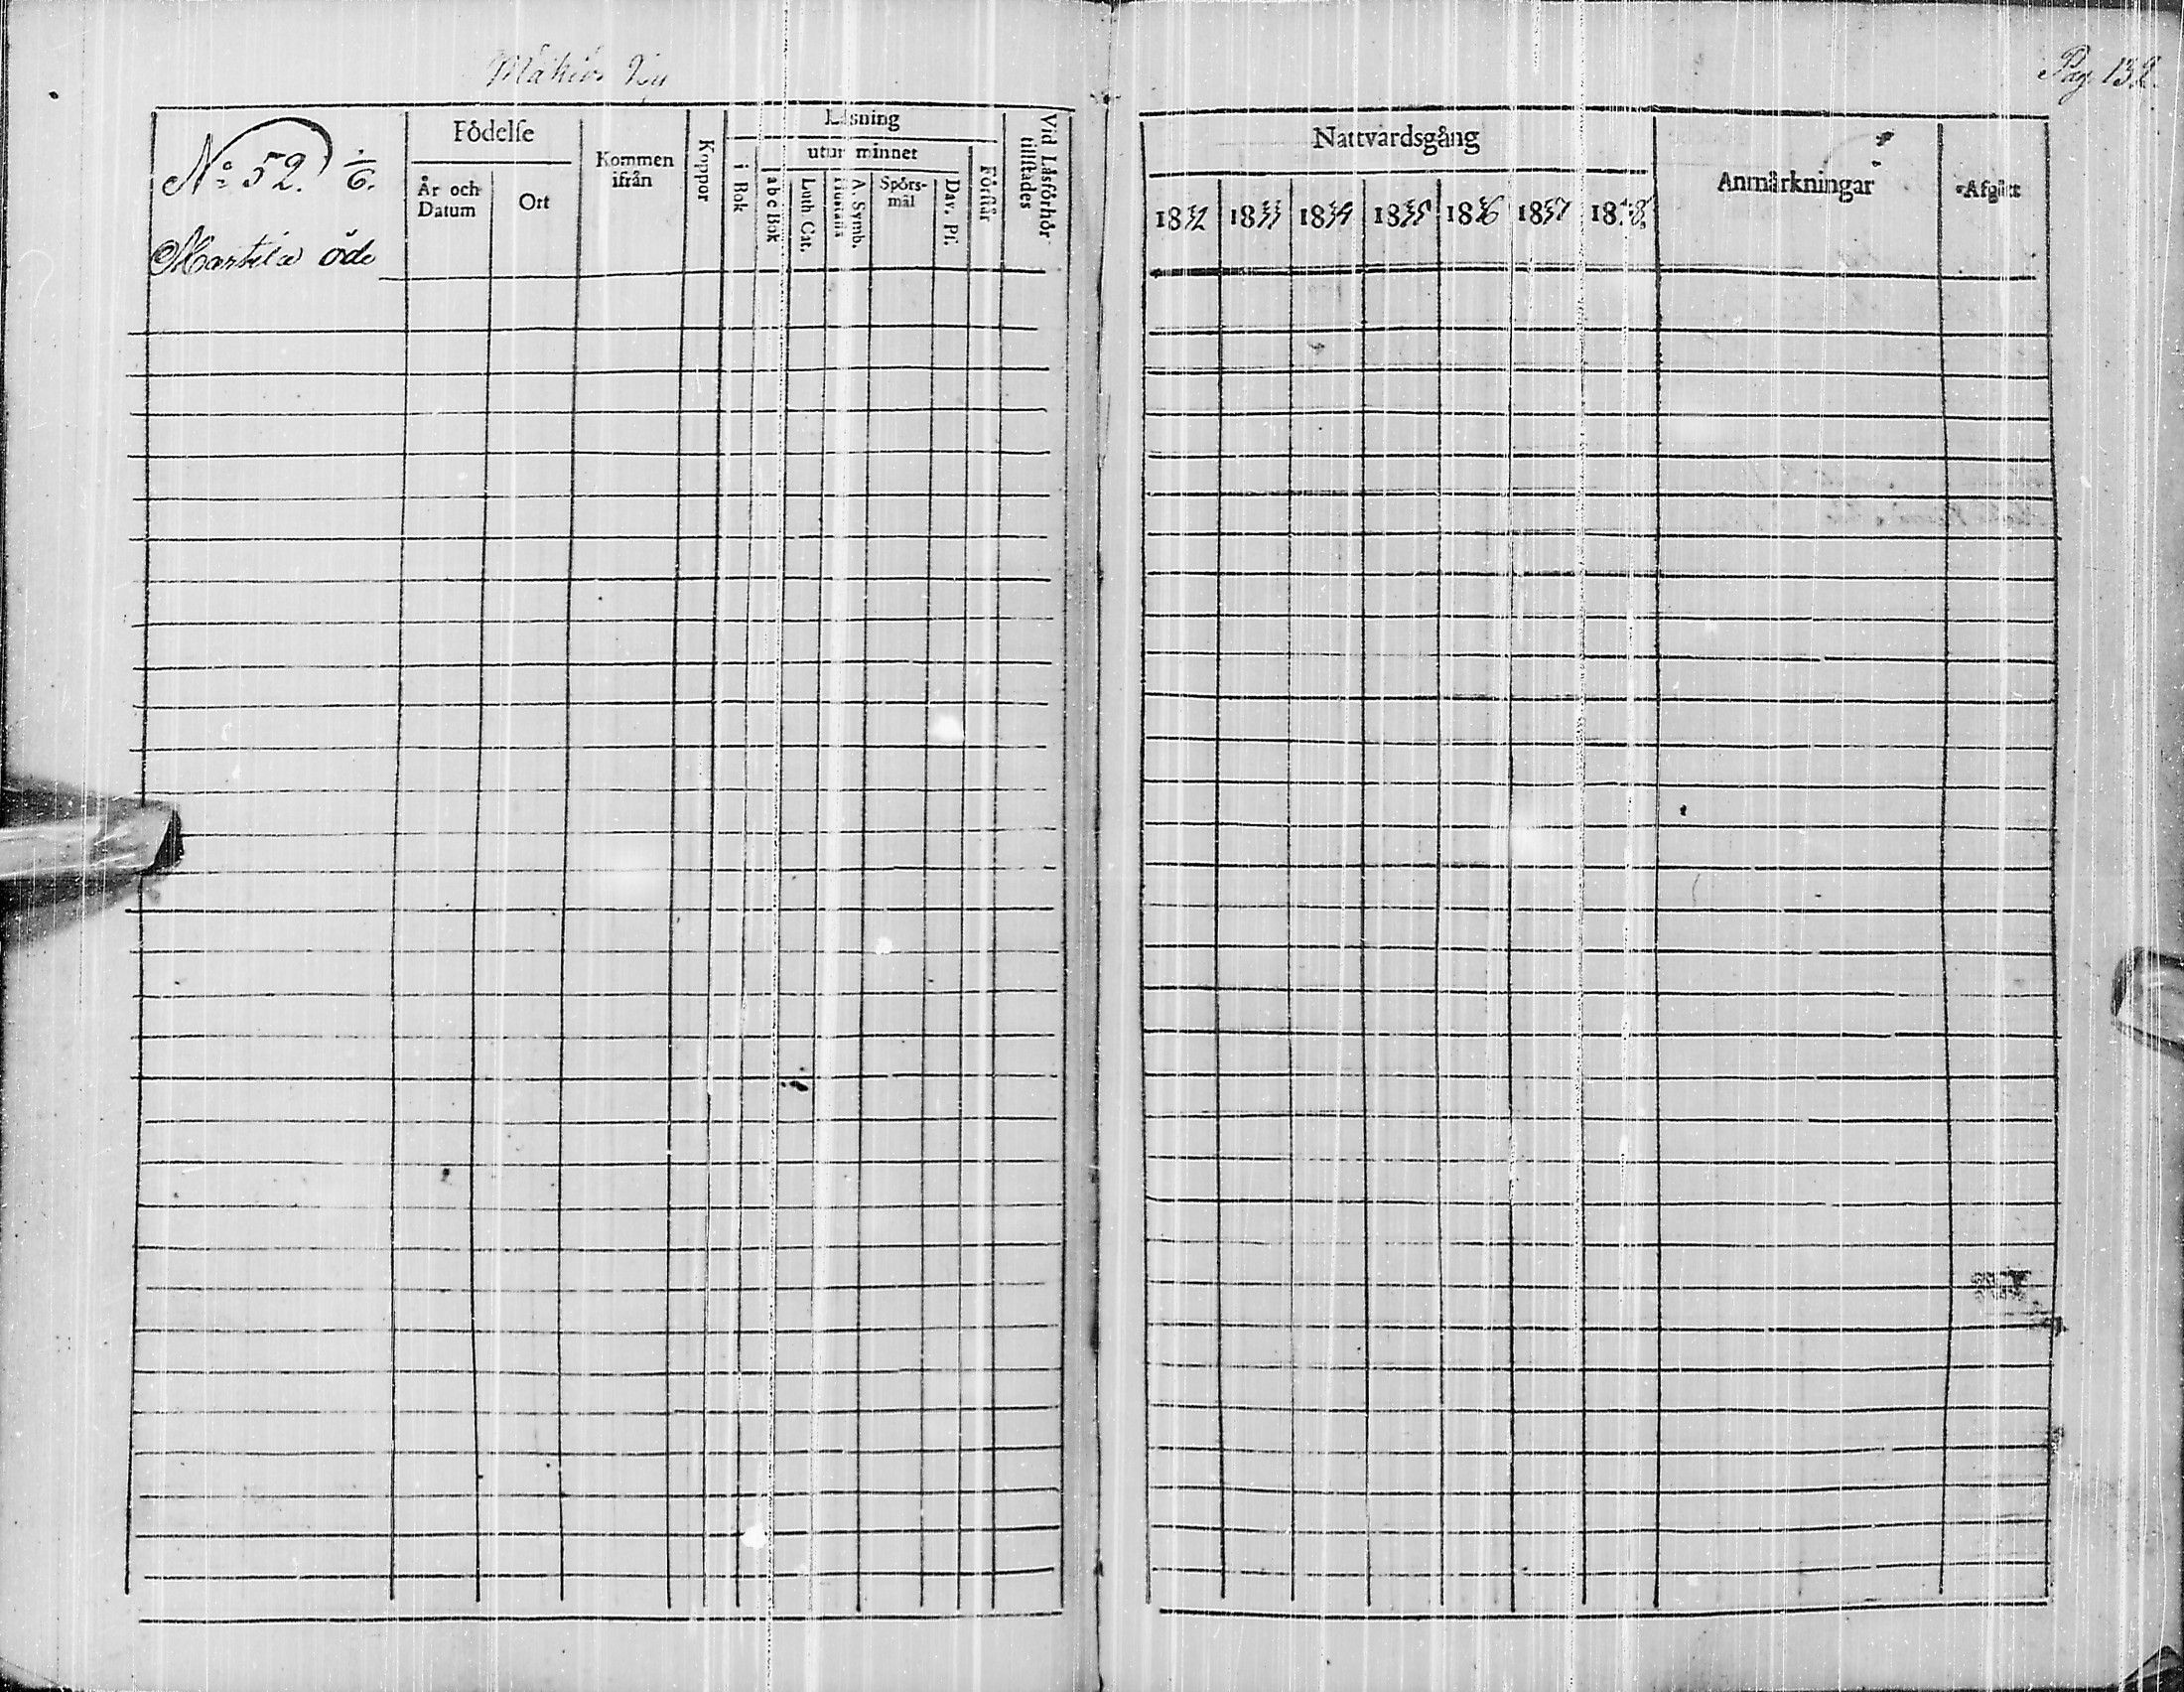 Pag. 132.
No 52. 1/6.
Martila öde
Födelse
År och Datum
Ort
Kommen ifrån
Koppor
Läsning
i Bok
utur minnet
a b c Bok
Luth. Cat.
Hustafla
A. Symb.
Spörs-
mål
Dav. Ps.
Förstår
Vid Läsförhör
tillstädes
Nattvardsgång
1832 1833 1834 1835 1836 1837 1838
Anmärkningar
Afgått